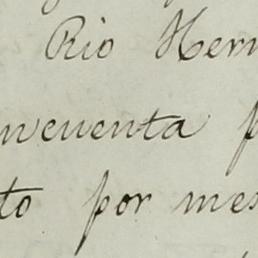 Rio Hern
ncuenta p
to por mes